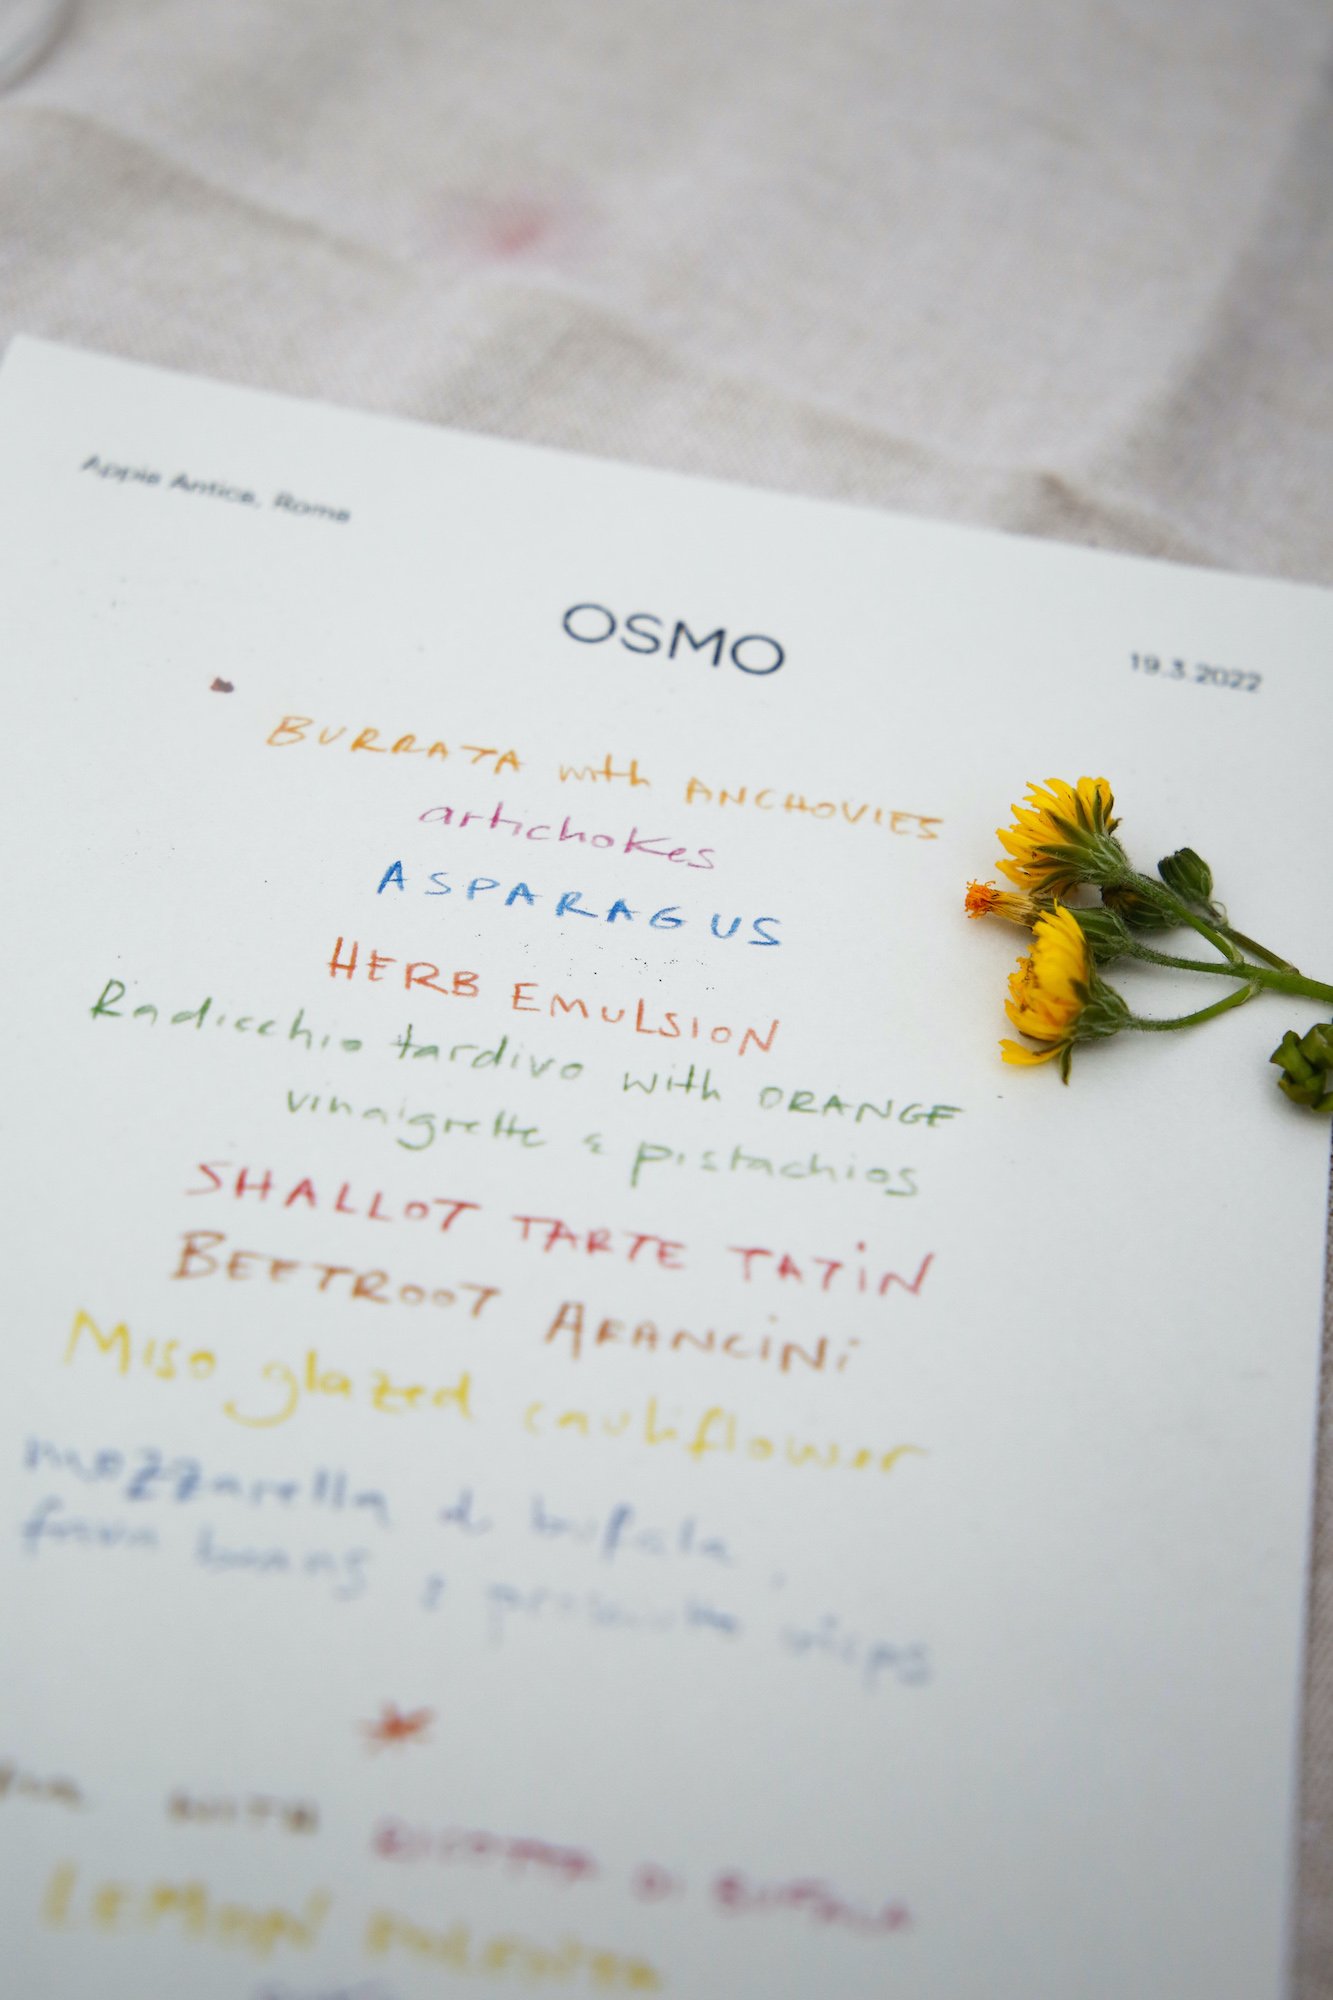 Appia Antica, Roma
OSMO
19.3.2022
BURRATA with ANCHOVIES
artichokes
ASPARAGUS
HERB EMULSION
Radicchio tardivo with ORANGE
vinaigrette & pistachios
SHALLOT TARTE TATiN
BEETROOT ARANCiNi
Miso glazed cauliflower
mozzarella di bufala,
fava beans & prosciutto
WITH RICOTTA Di BUFALA
LEMON